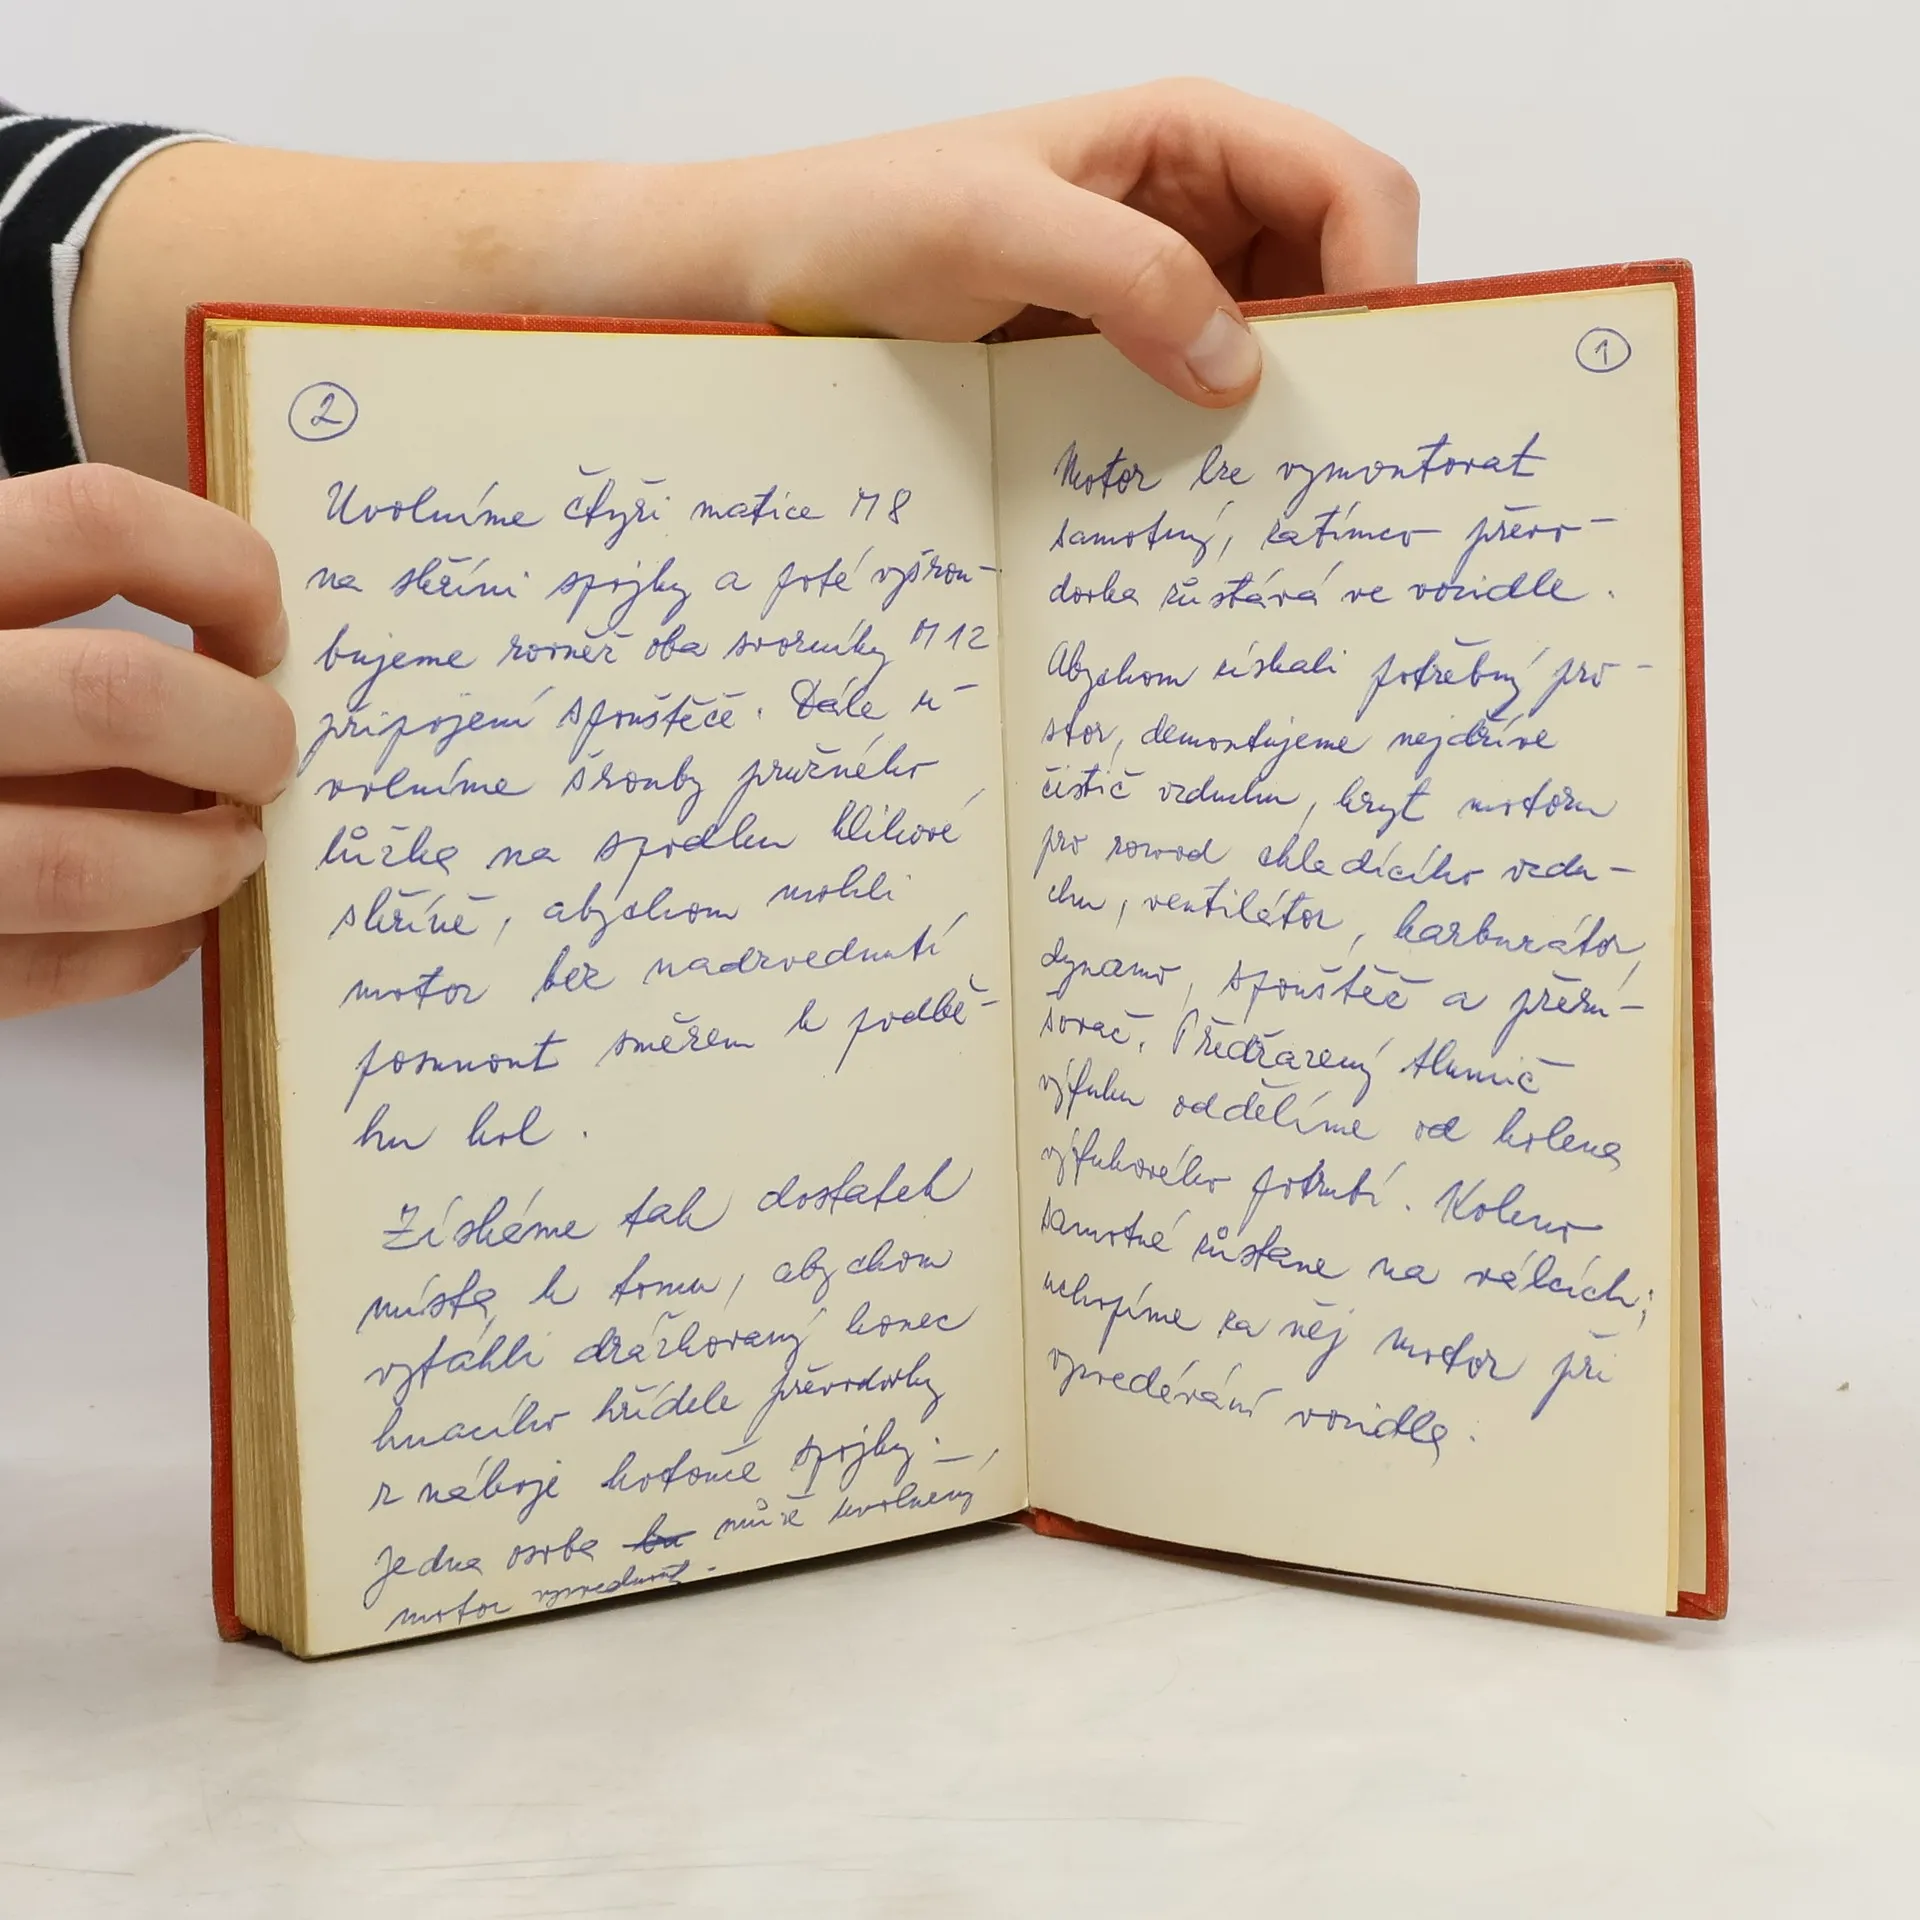 2
Uvolníme čtyři matice M 8
na skříni spojky a poté vyšrou-
bujeme rovněž oba svorníky M 12
připojení spouštěče. Dále u-
volníme šrouby pružného
lůžka na spodku klikové
skříně, abychom mohli
motor bez nadzvednutí
posunout směrem k podbě-
hu kol.
Získáme tak dostatek
místa, k tomu, abychom
vytáhli drážkovaný konec
hnacího hřídele převodovky
z náboje kotouče spojky. –
Jedna osoba může uvolněný
motor vyzvednout.
1
Motor lze vymontovat
samotný, zatímco převo-
dovka zůstává ve vozidle.
Abychom získali potřebný pro-
stor, demontujeme nejdříve
čistič vzduchu, kryt motoru
pro rozvod chladícího vzdu-
chu, ventilátor, karburátor,
dynamo, spouštěč a přeru-
šovač. Předřazený tlumič
výfuku oddělíme od kolena
výfukového potrubí. Koleno
samotné zůstane na válcích;
uchopíme za něj motor při
vyzvedávání vozidla.